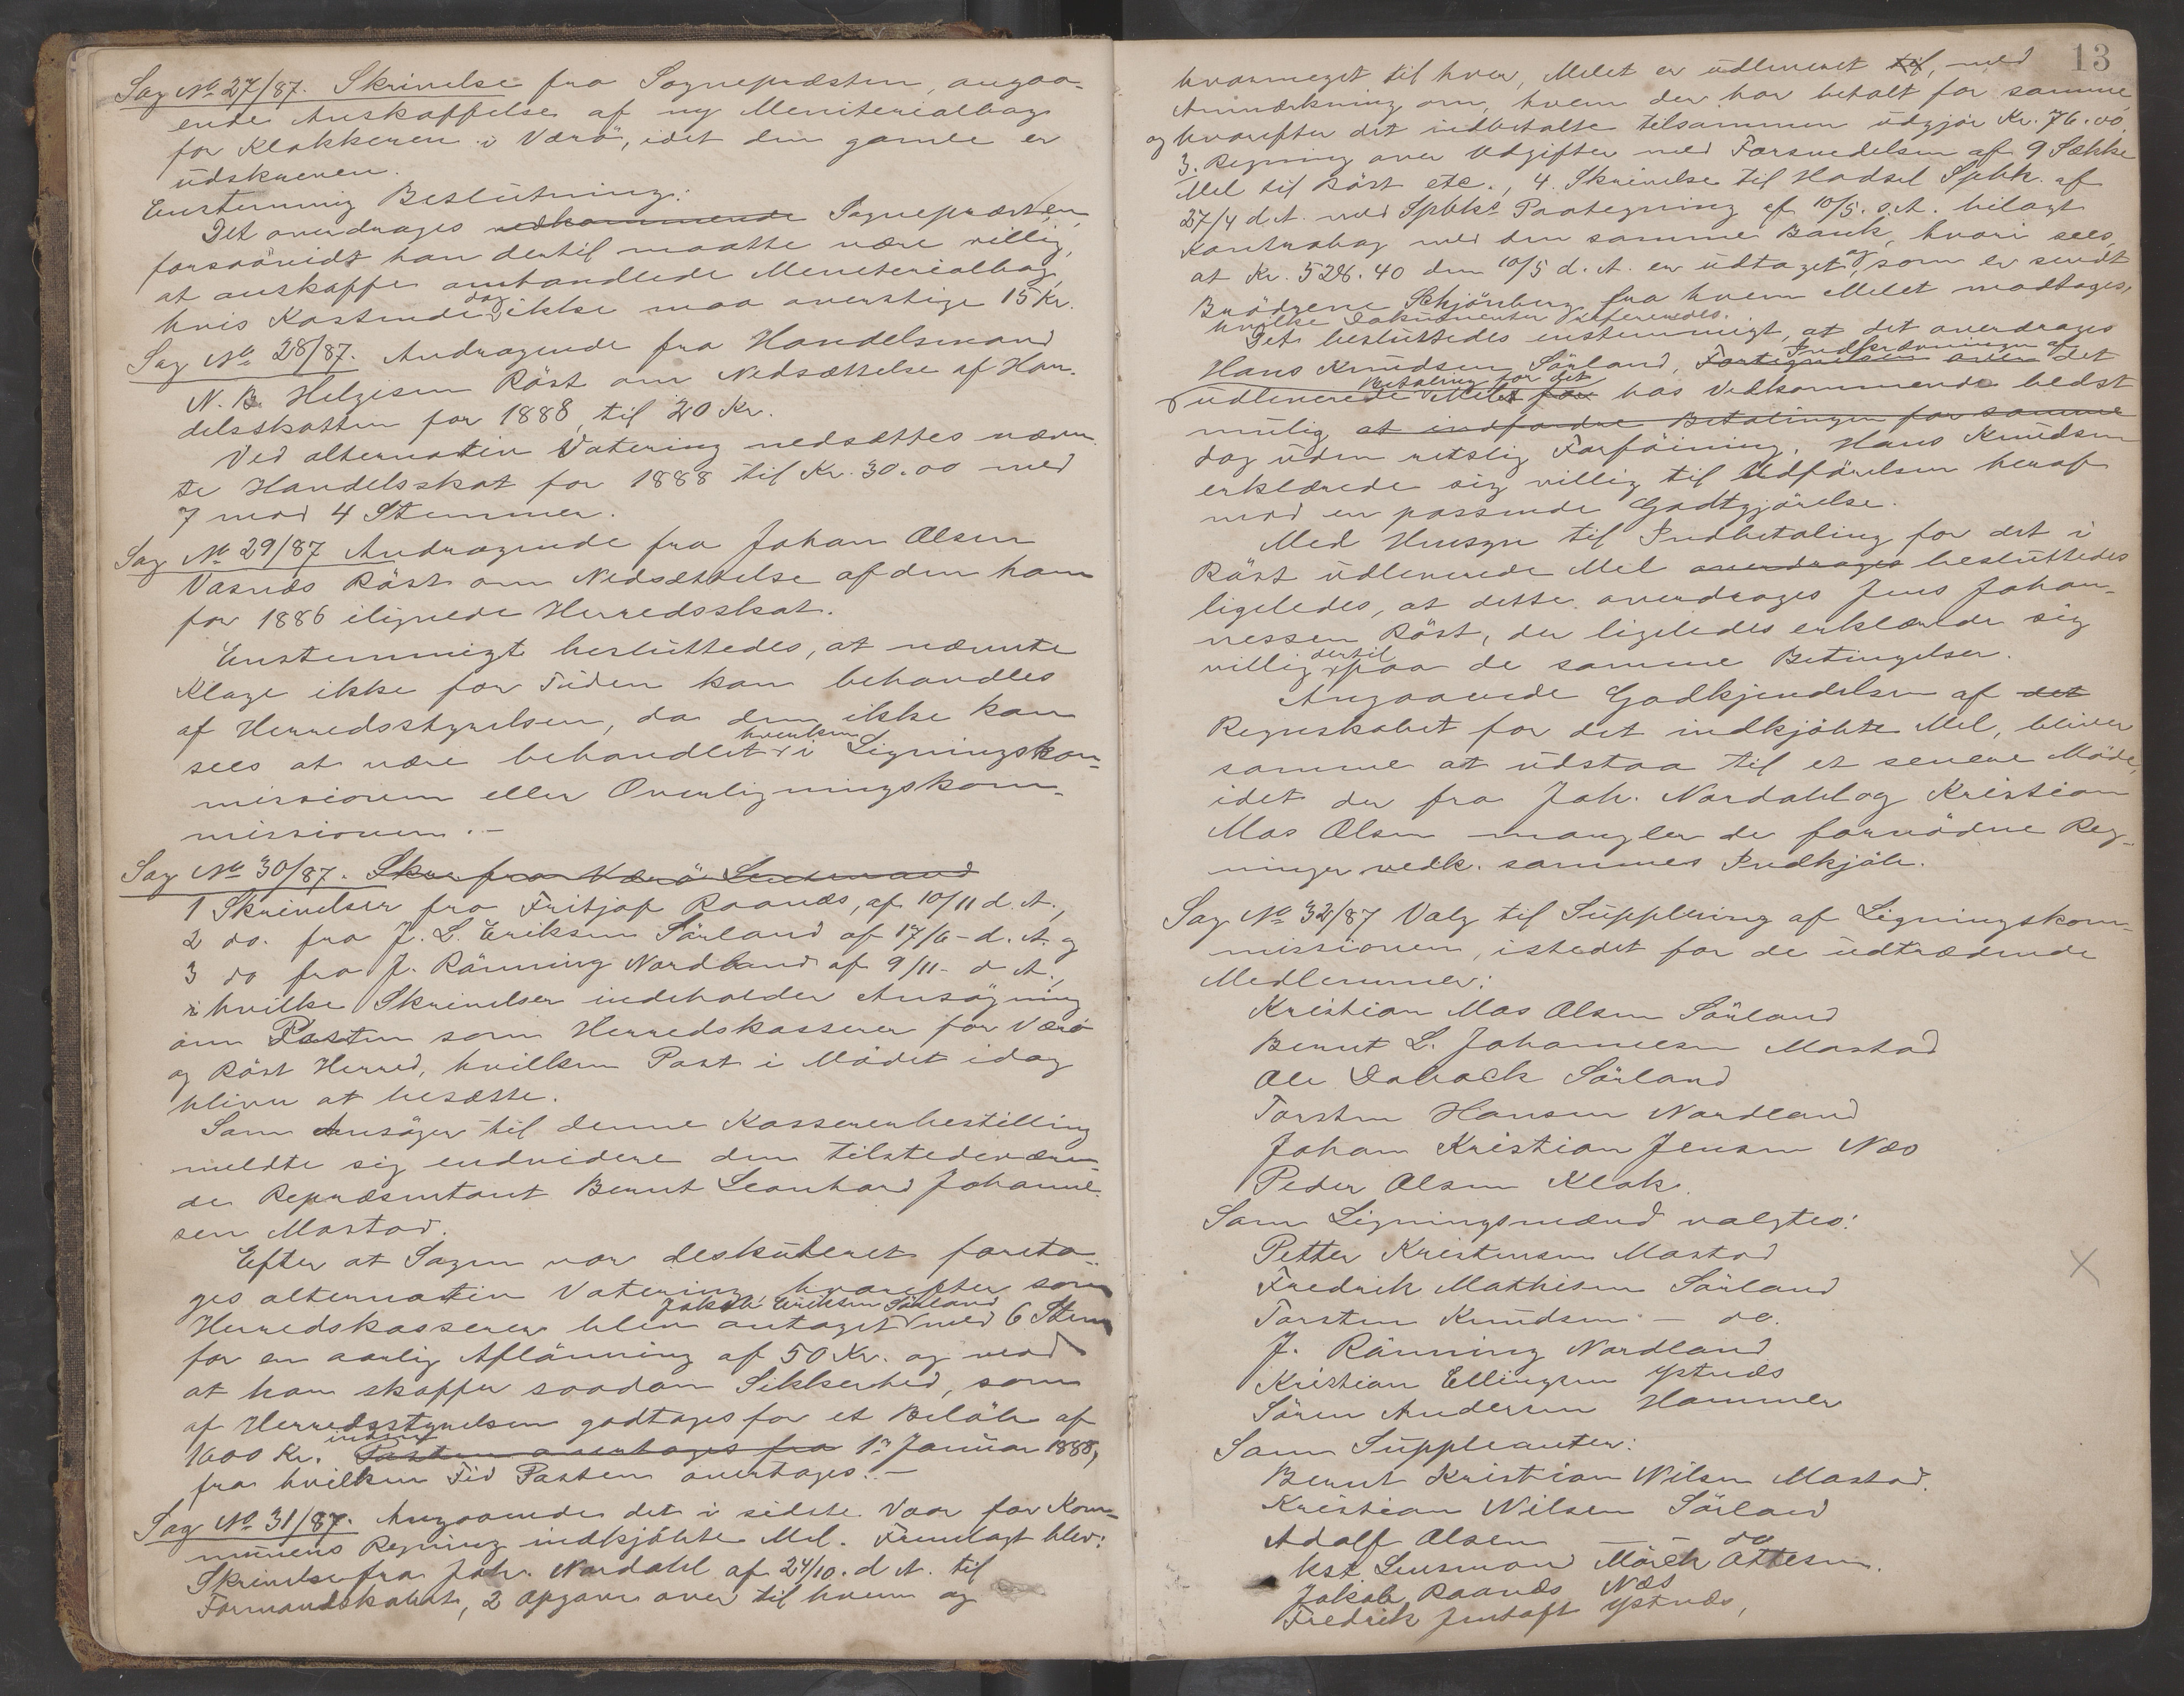 Sag No 27/87. Skrivelse fra Sognepræsten, angaa-
ende Anskaffelse af ny Meniterialbog
for Klokkeren i Værö, idet den gamle er
udskreven.
Enstemmig Beslutning:
Det overdrages vedkommende Sognepræsten,
forsaavidt han dertil maatte være villig,
at anskaffe omhandlede Meniterialbog,
hvis Kostende dog ikke maa overstige 15 Kr.
Sag No 28/87. Andragende fra Handelsmand
N. B. Helgesen Röst om Nedsættelse af Han-
delsskatten for 1888 til 20 Kr.
Ved alternativ Votering nedsættes nævn
te Handelsskat for 1888 til Kr. 30.00 med
7 mod 4 Stemmer.
Sag No 29/87 Andragende fra Johan Olsen
Vasnæs Röst om Nedsættelse af den ham
for 1886 ilignede Herredsskat.
Enstemmigt besluttedes, at nævnte
Klage ikke for Tiden kan behandles
af Herredsstyrelsen, da den ikke kan
sees at være behandlet hverken i Ligningskom-
missionen eller Overligningskom-
missionen. -
Sag No 30/87. Skr. fra Værö Lensmand
1 Skrivelser fra Fritjof Raanæs, af 10/11 d. A.,
2 do. fra J. L. Eriksen Sörland af 17/6 - d. A. og
3 do fra J. Rönning Nordland af 9/11 - d A.,
i hvilke Skrivelser indeholder Ansögning
om Posten som Herredskasserer for Værö
og Röst Herred, hvilken Post i Mödet idag
bliver at besætte.
Som Ansöger til denne Kassererbestilling
meldte sig endvidere den tilstedeværen-
de Repræsentant Bernt Leonhard Johanne-
sen Mostad.
Efter at Sagen var deskuteret foreto-
ges alternativ Votering hvorefter som
Herredskasserer blev antaget Jakob Eriksen Sörland med 6 Stem
for en aarlig Aflönning af 50 Kr. og mod
at han skaffer saadan Sikkerhed, som
af Herredsstyrelsen godtages for et Belöb af
1600 Kr. inden Posten overtages fra 1ste Januar 1888,
fra hvilken Tid Posten overtages. -
Sag No 31/87. Angaaende det i sidste Vaar for Kom-
munens Regning indkjöbte Mel. Fremlagt blev:
Skrivelse fra Joh. Nordahl af 24/10. d A. til
Formandskabet, 2 Opgave over til hvem og
13
hvormeget til hver, Melet er udleveret til, med
Anmærkning om, hvem der har betalt for samme,
og hvorefter det indbetalte tilsammen udgjör Kr. 76.00
3. Regning over Udgifter med Forsendelsen af 9 Sække
Mel til Röst etc., 4. Skrivelse til Hadsel Spbk. af
27/4 d.A. med Spbks Paategning af 10/5. s.A. bilagt
Kontrabog med den samme Bank, hvori sees,
at Kr. 528.40 den 10/5 d. A. er udtaget, og som er sendt
Brödrene Schjönberg fra hvem Melet modtages,
hvilke Dokumenter refereredes.
Det besluttedes enstemmigt, at det overdrages
Hans Knudsen Sörland, Fortegnelsen over Indfordringen af det
udleverede Betaling for det Melet for hos Vedkommende bedst
mulig at indfordre Betalingen for samme
dog uden retslig Forföining. Hans Knudsen
erklærede sig villig til Udförelsen heraf
mod en passende Godtgjörelse.
Med Hensyn til Indbetaling for det i
Röst udleverede Mel overdrages besluttedes
ligeledes, at dette overdrages Jens Johan-
nessen Röst, der ligeledes erklærede sig
villig dertil paa de samme Betingelser.
Angaaende Godkjendelsen af det
Regnskabet for det indkjöbte Mel, bliver
samme at udstaa til et senere Möde,
idet der fra Joh. Nordahl og Kristian
Mos Olsen mangler de fornödne Reg-
ninger vedk. sammes Indkjöb.
Sag No 32/87 Valg til Supplering af Ligningskom-
missionen, istedet for de udtrædende
Medlemmer:
Kristian Mos Olsen Sörland
Bernt L. Johannesen Mostad
Ole Laback Sörland
Torsten Hansen Nordland
Johan Kristian Jensen Næs
Peder Olsen Klak.
Som Ligningsmænd valgtes:
Petter Kristensen Mostad
Fredrik Mathisen Sörland
Torsten Knudsen - do.
J. Rönning Nordland
Kristian Ellingsen Ystnæs
Sören Andersen Hammer
Som Suppleanter:
Bernt Kristian Nilsen Mostad.
Kristian Nilsen Sörland
Adolf Olsen - - do
kst. Lensmand Mörch Ottesen.
Jakob Raanæs Næs
Fredrik Jentoft Ystnæs,